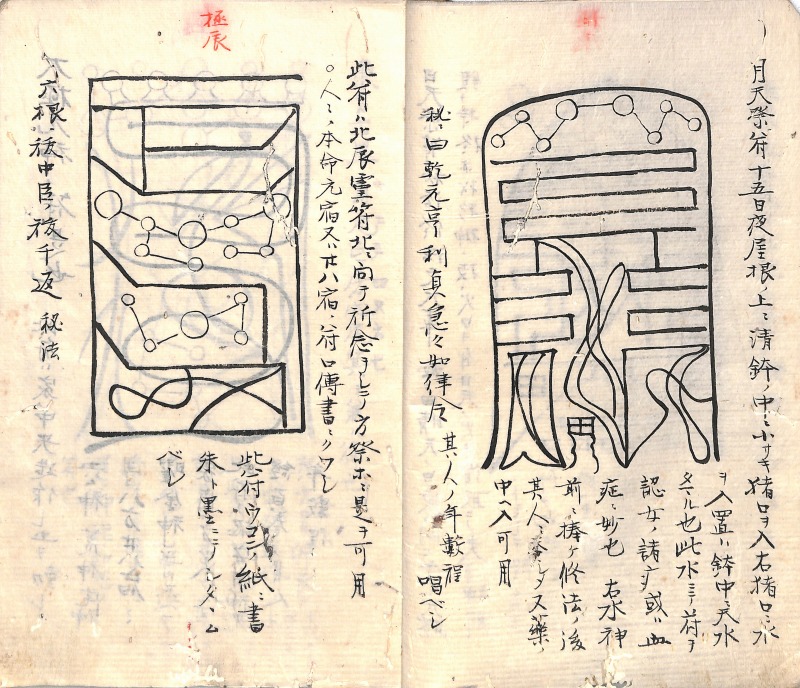 月天祭符 十五日夜屋根ノ上ニ清鉢ノ中ニ小サキ猪口ヲ入右猪口ニ水
ヲ入置ハ鉢中ニ天水
タマル也此水ニテ符ヲ
認女ノ諸病或ハ血
症ニ妙也 右水神
前ニ捧ケ修法ノ後
其人ニ 又薬ノ
中ヘ入可用
秘ニ曰乾元亨利貞急々如律令 其人ノ年數程
唱ベシ
極辰
此符ハ北辰靈符北ニ向テ祈念ヲシテ方祭ホニ是ヲ可用
○人々ノ本命元宿又ハ廿八宿ノ符口傳書ニクワシ
此符ウコンノ紙ニ書
朱ト墨ニテシタヽム
ベシ
六根ノ祓中臣ノ祓千返 秘法